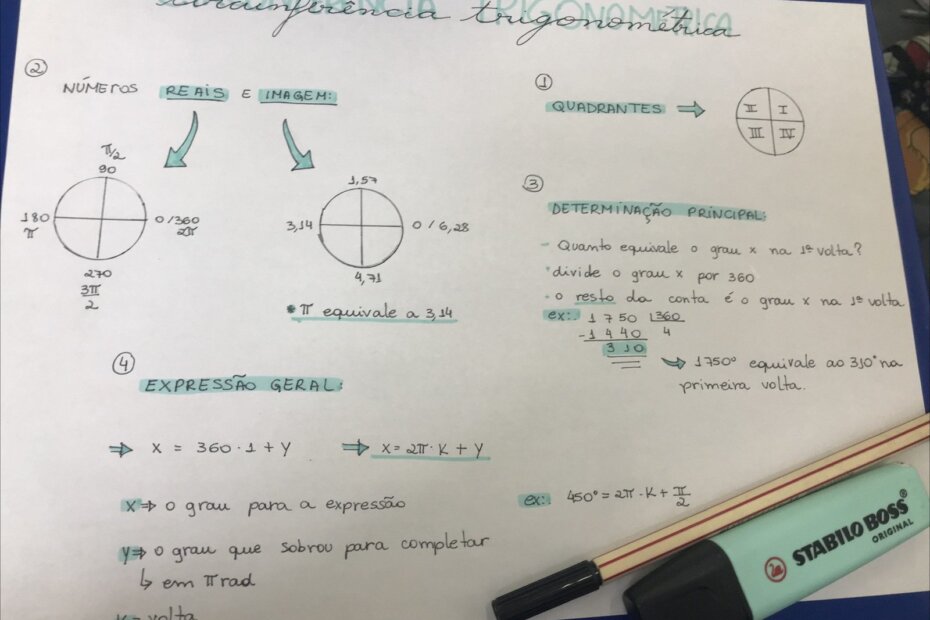 Circunferência trigonométrica
②
NÚMEROS REAIS E IMAGEM:
π/2
90
180
π
0/360
2π
270
3π
2
1,57
3,14
0/6,28
4,71
* π equivale a 3,14
①
QUADRANTES ⇒
II I
III IV
③
DETERMINAÇÃO PRINCIPAL:
- Quanto equivale o grau x na 1ª volta?
• divide o grau x por 360
• o resto da conta é o grau x na 1ª volta
ex: 1750 360
-1440 4
310
1750° equivale ao 310° na
primeira volta.
④
EXPRESSÃO GERAL:
⇒ X = 360·1+Y ⇒ X=2π·K+Y
x ⇒ o grau para a expressão
y ⇒ o grau que sobrou para completar
↳ em π rad
K = volta
ex: 450° = 2π·K+π/2
STABILO BOSS®
ORIGINAL